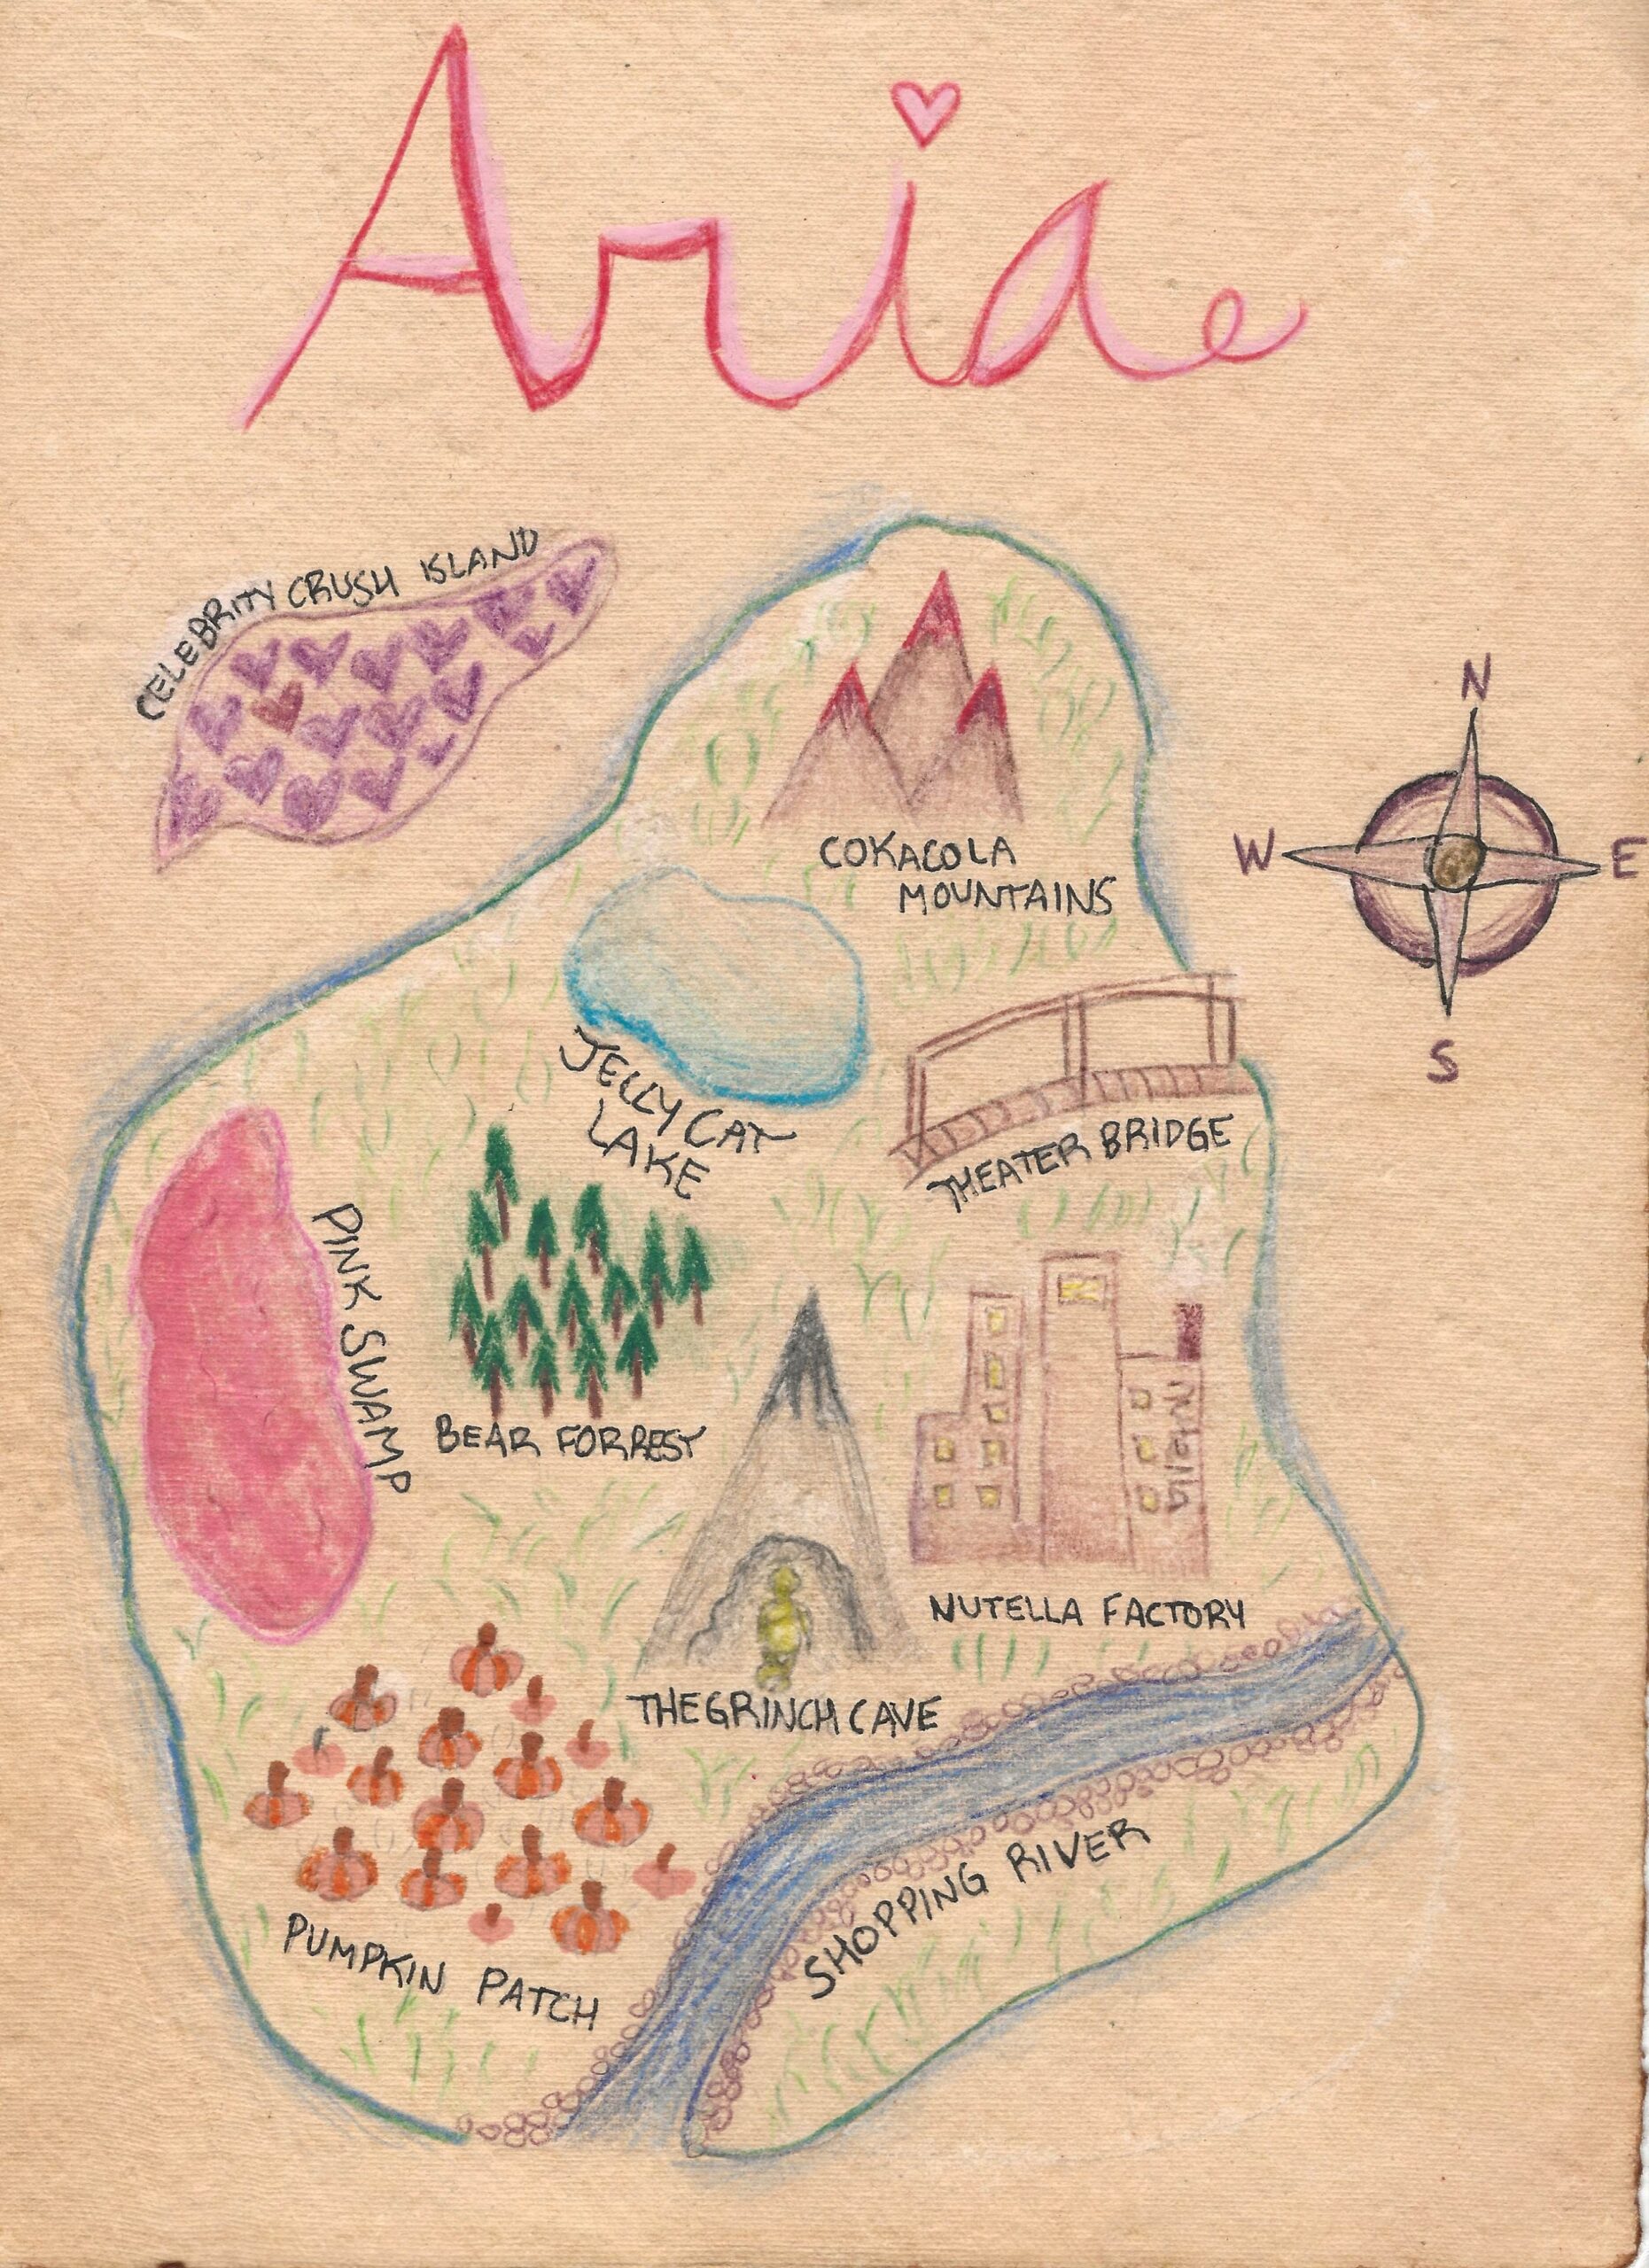 Aria
CELEBRITY CRUSH ISLAND
N
W
E
S
COKACOLA
MOUNTAINS
JELLY CAT
LAKE
THEATER BRIDGE
PINK SWAMP
BEAR FORREST
Nutella
NUTELLA FACTORY
THE GRINCH CAVE
SHOPPING RIVER
PUMPKIN PATCH